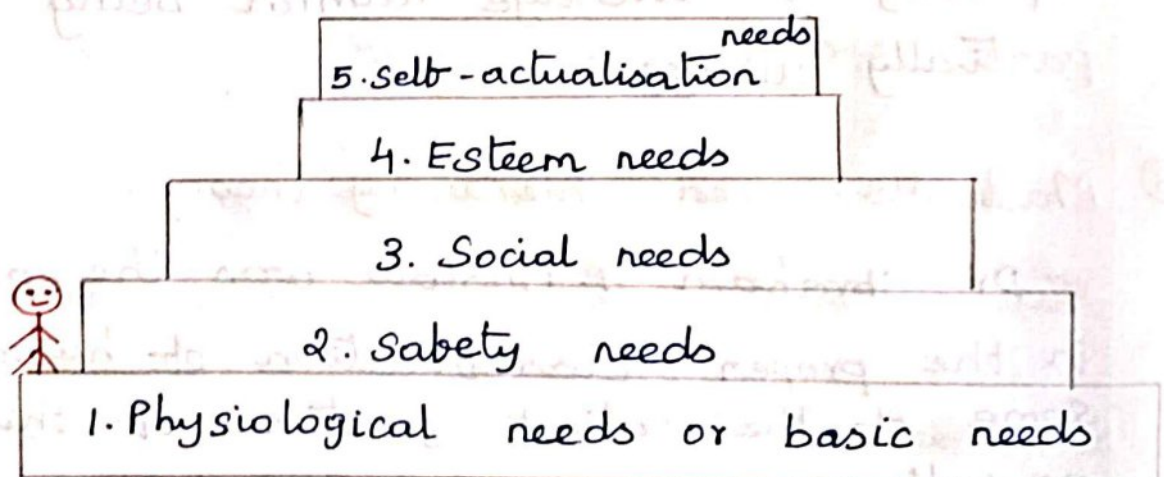 needs
5. selb-actualisation
4. Esteem needs
3. Social needs
2. Sabety needs
1. Physiological needs or basic needs